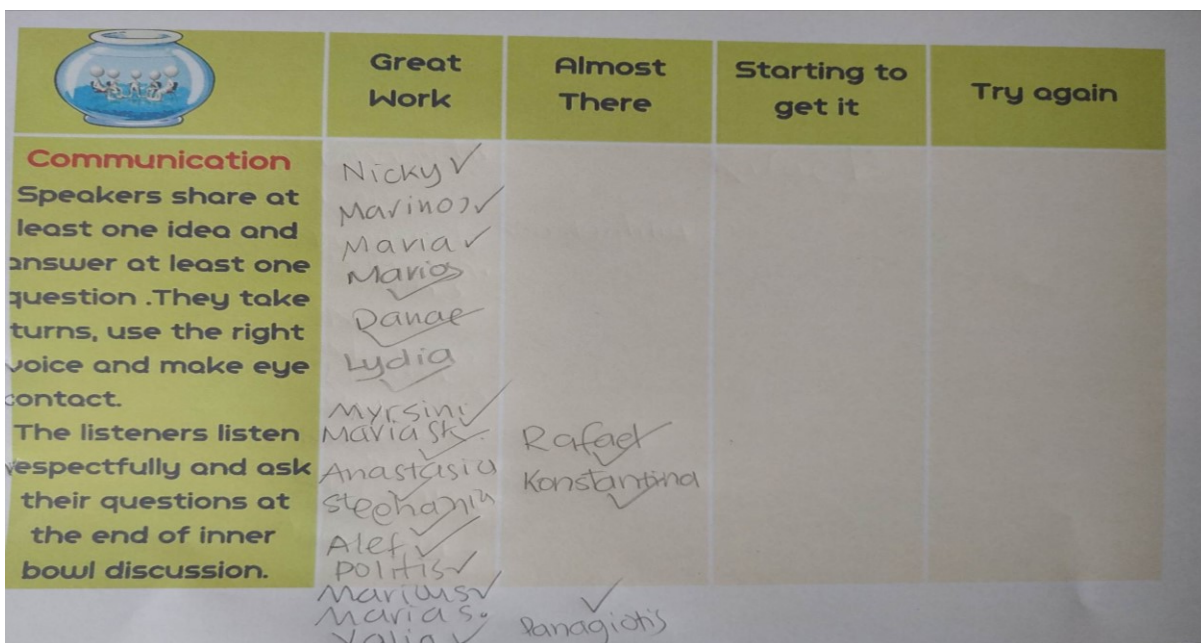 Great
Work
Almost
There
Starting to
get it
Try again
Communication
Speakers share at
least one idea and
answer at least one
question .They take
turns, use the right
voice and make eye
contact.
The listeners listen
respectfully and ask
their questions at
the end of inner
bowl discussion.
Nicky ✓
Marinos ✓
Maria ✓
Marios
Danae
Lydia
Myrsini
Maria Sk.
Anastasia
Stephania
Alef
Politis ✓
Marius ✓
Maria S.
Rafael
Konstantina
Panagiotis